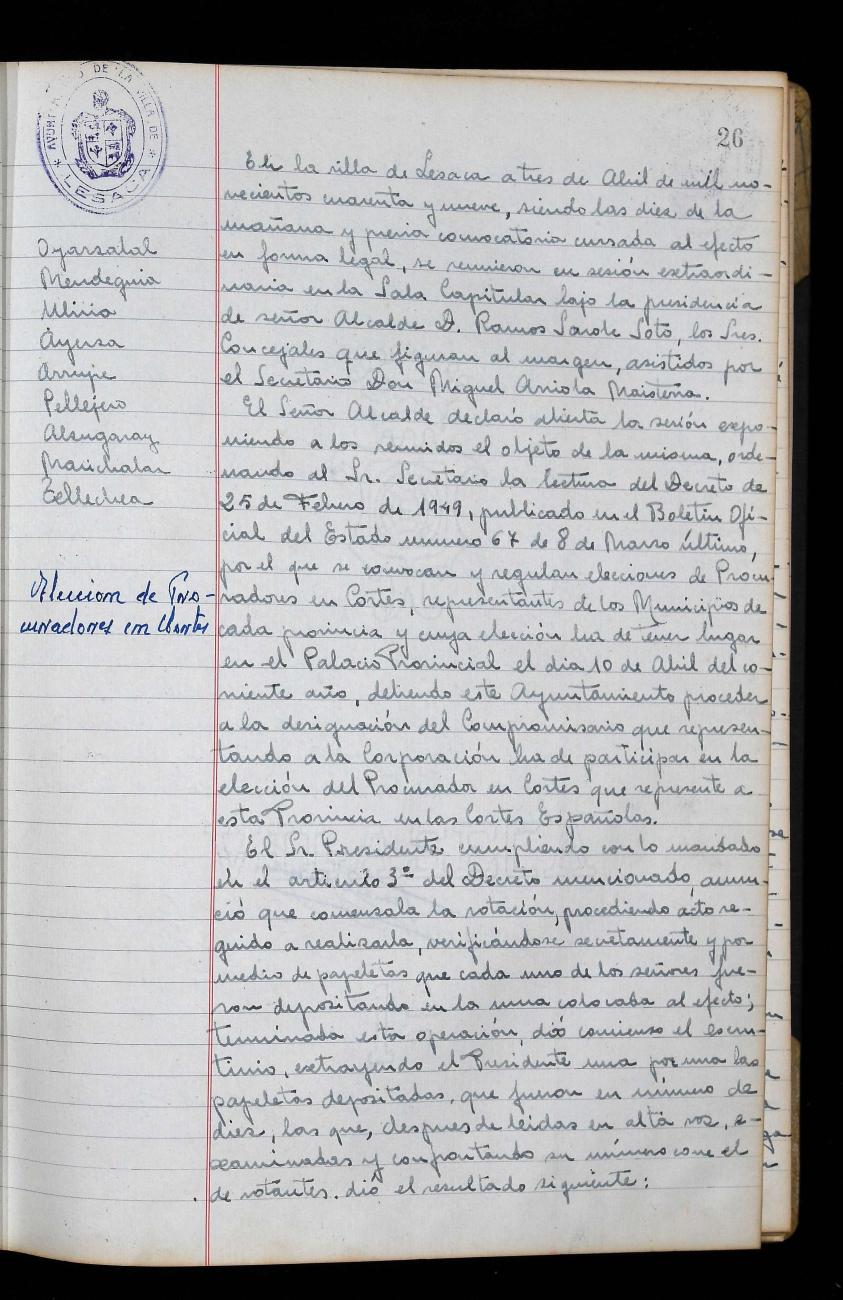 AYUNTAMIENTO DE LA VILLA DE
* LESACA *
26
Oyarzabal
Mendeguia
Ayerza
Arrupe
Pellejero
Alzugaray
Marichalar
Tellechea
Eleccion de Pro-
curadores en Cortes
En la villa de Lesaca a tres de Abril de mil no-
vecientos cuarenta y nueve, siendo las diez de la
mañana y previa convocatoria cursada al efecto
en forma legal, se reunieron en sesión extraordi-
naria en la Sala Capitular bajo la presidencia
de señor Alcalde D. Ramos Soto, los Sres.
Concejales que figuran al margen, asistidos por
el Secretario Don Miguel Arriola
El Señor Alcalde declaró abierta la sesión expo-
niendo a los reunidos el objeto de la misma, orde-
nando al Sr. Secretario la lectura del Decreto de
25 de Febrero de 1949, publicado en el Boletín Ofi-
cial del Estado numero 67 de 8 de Marzo último,
por el que se convocan y regulan elecciones de Procu-
radores en Cortes, representantes de los Municipios de
cada provincia y cuya elección ha de tener lugar
en el Palacio Provincial el dia 10 de Abril del co-
rriente año, debiendo este Ayuntamiento proceder
a la designación del Compromisario que represen-
tando a la Corporación ha de participar en la
elección del Procurador en Cortes que represente a
esta Provincia en las Cortes Españolas.
El Sr. Presidente cumpliendo con lo mandado
en el articulo 3º del Decreto mencionado, anun-
ció que comenzaba la votación, procediendo acto se-
guido a realizarla, verificándose secretamente y por
medio de papeletas que cada uno de los señores fue-
ron depositando en la urna colocada al efecto;
terminada esta operación, dió comienzo el escru-
tinio, extrayendo el Presidente una por una las
papeletas depositadas, que fueron en número de
diez, las que, despues de leidas en alta voz, e-
xaminadas y confrontando su número con el
de votantes, dió el resultado siguiente: